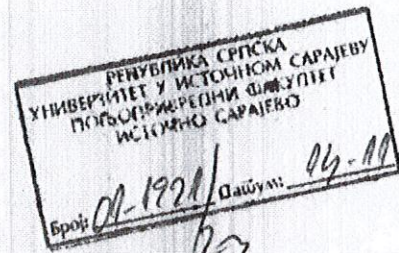 РЕПУБЛИКА СРПСКА
УНИВЕРЗИТЕТ У ИСТОЧНОМ САРАЈЕВУ
ПОЉОПРИВРЕДНИ ФАКУЛТЕТ
ИСТОЧНО САРАЈЕВО
Број: 01-1921/ Датум: 14-11